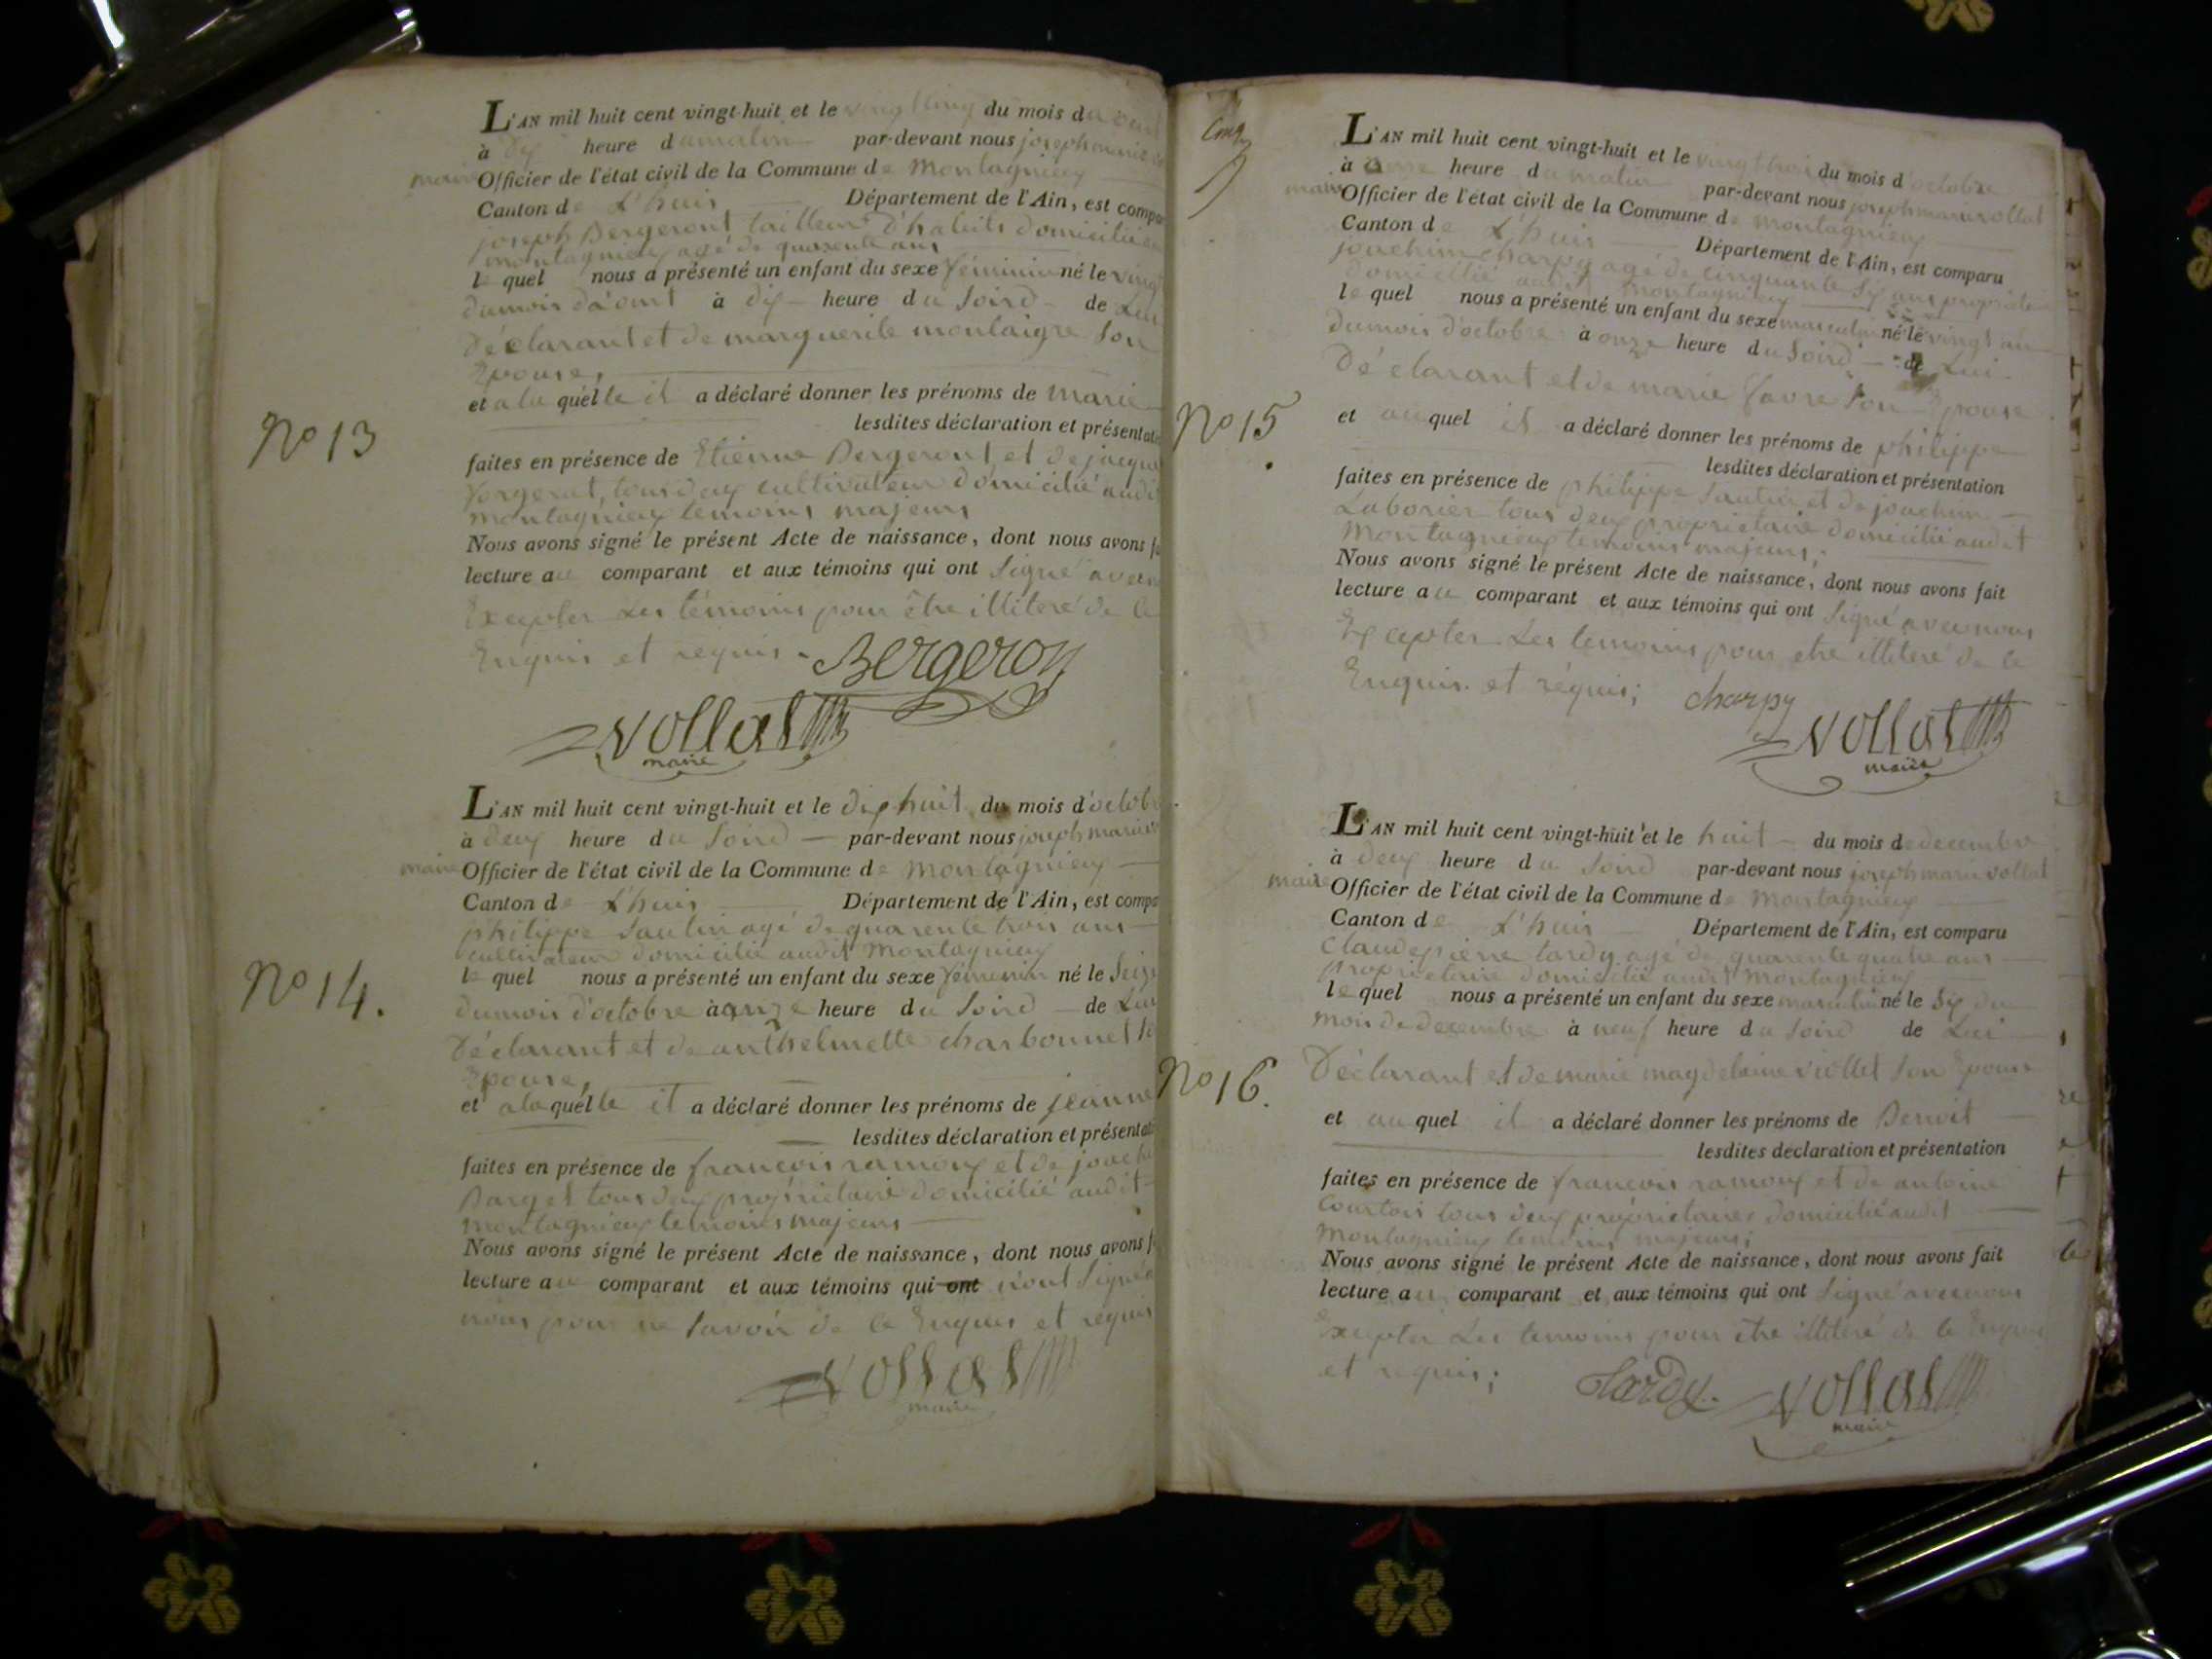 L'AN mil huit cent vingt-huit et le vingt cinq du mois d
à dix heure du matin par-devant nous joseph marie
maire Officier de l'état civil de la Commune de Montagnieux
Canton de L'huis Département de l'Ain, est compa
joseph Bergeront tailleur d'habits domicilié
montagnieux agé de quarente ans
le quel nous a présenté un enfant du sexe féminin né le vingt
du mois d'aout à dix heure du soird de Lui
Déclarant et de marguerite montaigre son
Epouse,
et a la quélle il a déclaré donner les prénoms de marie
No 13
lesdites déclaration et présentati
faites en présence de Etienne Bergeront, et de jacque
tous deux cultivateur domicilié audit
montagnieux temoins majeurs
Nous avons signé le présent Acte de naissance, dont nous avons f
lecture au comparant et aux témoins qui ont signé avec
Excepter Les témoins pour être illiteré de ce
Enquis et requis. Bergeron
Vollat
maire
L'AN mil huit cent vingt-huit et le dix huit du mois d'octob
à deux heure du soird par-devant nous joseph marie
maire Officier de l'état civil de la Commune de Montagnieux
Canton de L'huis Département de l'Ain, est compa
philippe sautin agé de quarente trois ans
cultivateur domicilié audit Montagnieux
No 14.
le quel nous a présenté un enfant du sexe féminin né le seize
du mois d'octobre à onze heure du soird de Lui
Déclarant et de anthelmette charbonnet so
Epouse,
et a la quélle il a déclaré donner les prénoms de jeanne
lesdites déclaration et présentati
faites en présence de francois ramoux et de joachi
Barget tous deux proprietaire domicilié audit
montagnieux temoins majeurs
Nous avons signé le présent Acte de naissance, dont nous avons f
lecture au comparant et aux témoins qui ont n'ont signé
nous pour ne savoir de ce Enquis et requis
Vollat
maire
L'AN mil huit cent vingt-huit et le vingt trois du mois d'octobre
à onze heure du matin par-devant nous joseph marie vollat
maire Officier de l'état civil de la Commune de Montagnieux
Canton de L'huis Département de l'Ain, est comparu
joachim charpy agé de cinquante six ans proprietaire
domicilié audit montagnieux
le quel nous a présenté un enfant du sexe masculin né le vingt un
du mois d'octobre à onze heure du soird de Lui
Déclarant et de marie favre son Epouse
No 15
et au quel il a déclaré donner les prénoms de philippe
lesdites déclaration et présentation
faites en présence de philippe sautin et de joachim
Laborier tous deux proprietaire domicilié audit
Montagnieux temoins majeurs;
Nous avons signé le présent Acte de naissance, dont nous avons fait
lecture au comparant et aux témoins qui ont signé avec nous
Excepter Les temoins pour etre illiteré de ce
Enquis et réquis; charpy
Vollat
maire
L'AN mil huit cent vingt-huit et le huit du mois de decembre
à deux heure du soird par-devant nous joseph marie vollat
maire Officier de l'état civil de la Commune de Montagnieux
Canton de L'huis Département de l'Ain, est comparu
Claude pierre tardy agé de quarente quatre ans
proprietaire domicilié audit Montagnieux
le quel nous a présenté un enfant du sexe masculin né le six du
mois de decembre à neuf heure du soird de Lui
No 16.
Déclarant et de marie magdelaine viollet son Epouse
et au quel il a déclaré donner les prénoms de Benoit
lesdites déclaration et présentation
faites en présence de francois ramoux et de antoine
Courtois tous deux proprietaires domicilié audit
Montagnieux temoins majeurs;
Nous avons signé le présent Acte de naissance, dont nous avons fait
lecture au comparant et aux témoins qui ont signé avec nous
Excepter Les temoins pour être illiteré de ce Enquis
et requis; tardy. Vollat
maire